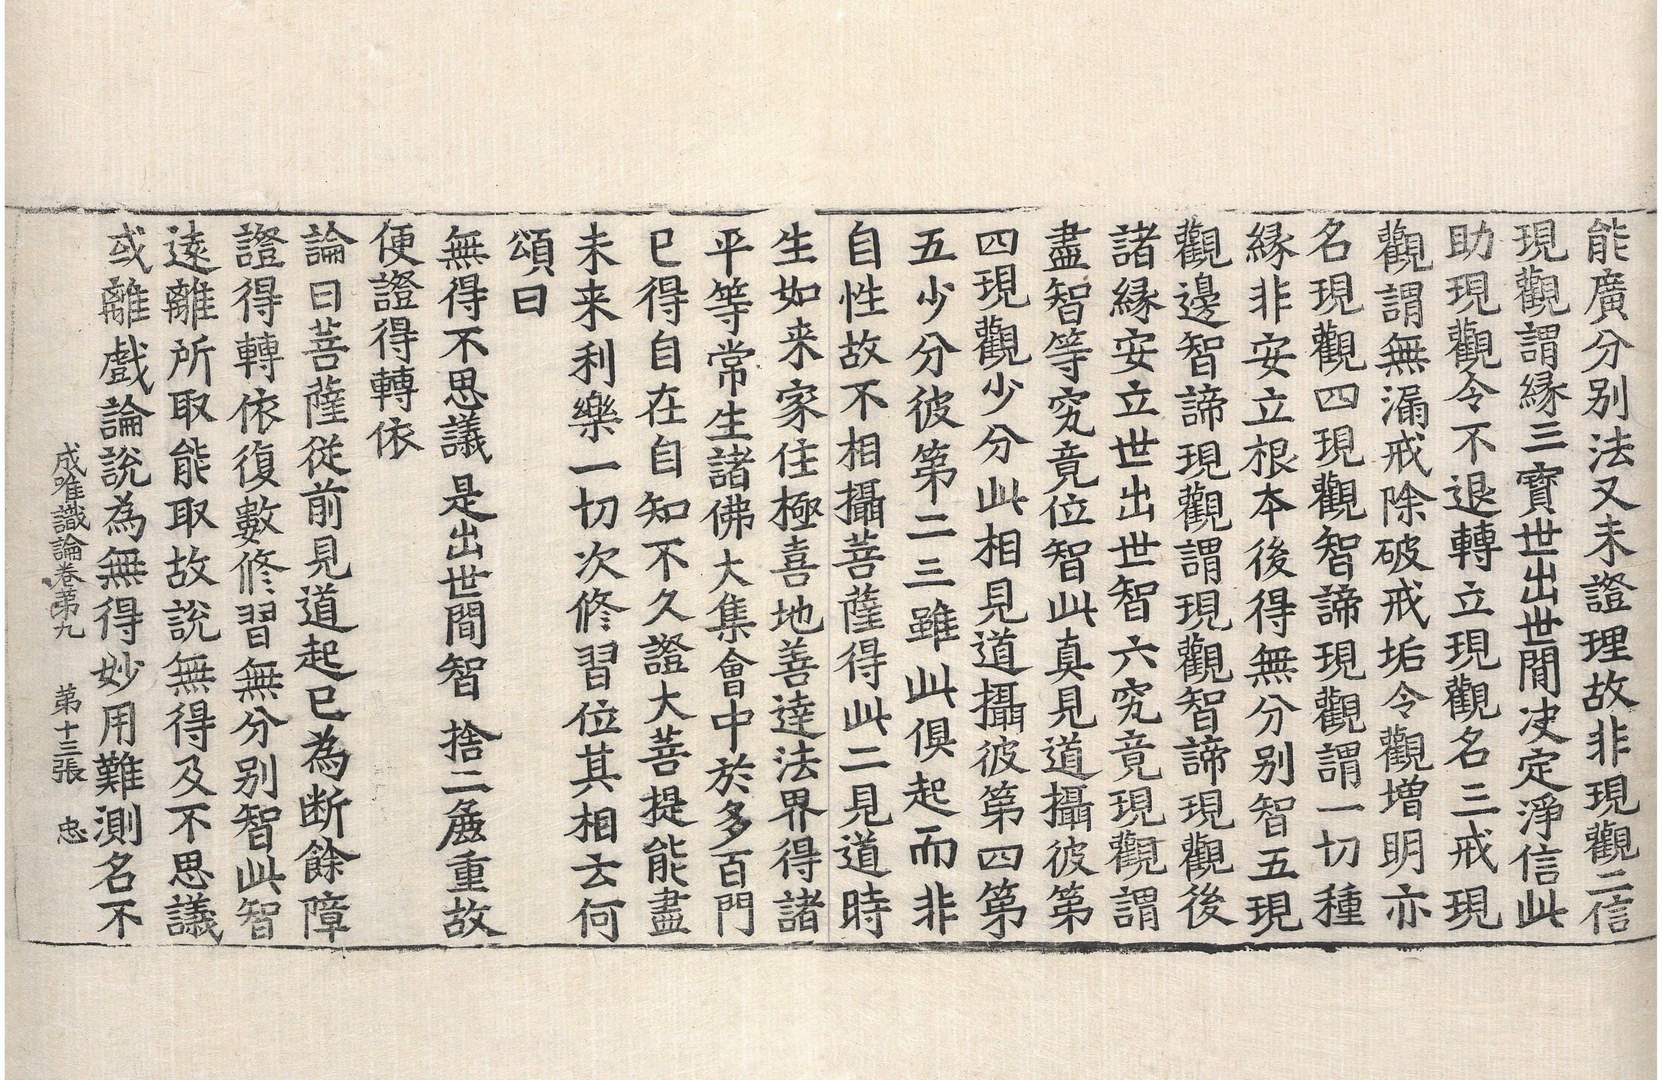 能廣分別法又未證理故非現觀二信
現觀謂縁三寶世出世間决定淨信此
助現觀令不退轉立現觀名三戒現
觀謂無漏戒除破戒垢令觀増明亦
名現觀四現觀智諦現觀謂一切種
縁非安立根本後得無分别智五現
觀邊智諦現觀謂現觀智諦現觀後
諸縁安立世出世智六究竟現觀謂
盡智等究竟位智此真見道攝彼第
四現觀少分此相見道攝彼第四第
五少分彼第二三雖此俱起而非
自性故不相攝菩薩得此二見道時
生如来家住極喜地善達法界得諸
平等常生諸佛大集會中於多百門
已得自在自知不久證大菩提能盡
未来利樂一切次修習位其相云何
頌曰
無得不思議 是出世間智 捨二麁重故
便證得轉依
論曰菩薩從前見道起已為断餘障
證得轉依復數修習無分别智此智
遠離所取能取故說無得及不思議
或離戲論說為無得妙用難測名不
成唯識論卷第九 第十三張 忠